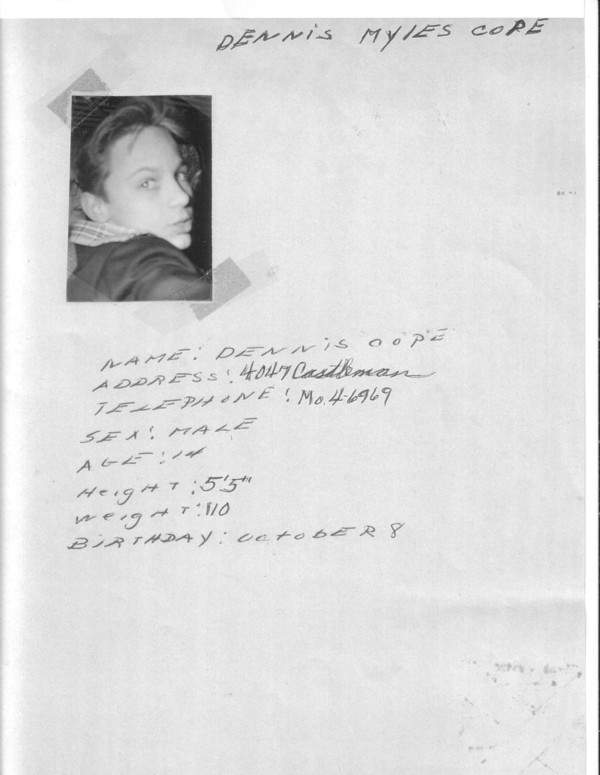 DENNiS MYlES COPE
NAME: DENNiS COPE
ADDRESS: 4047 Castleman
TELEPHONE: Mo. 4-6969
SEX: MALE
AGE: 14
HEigHT: 5'5"
WEigHT: 110
BiRTHDAY: OCTOBER 8